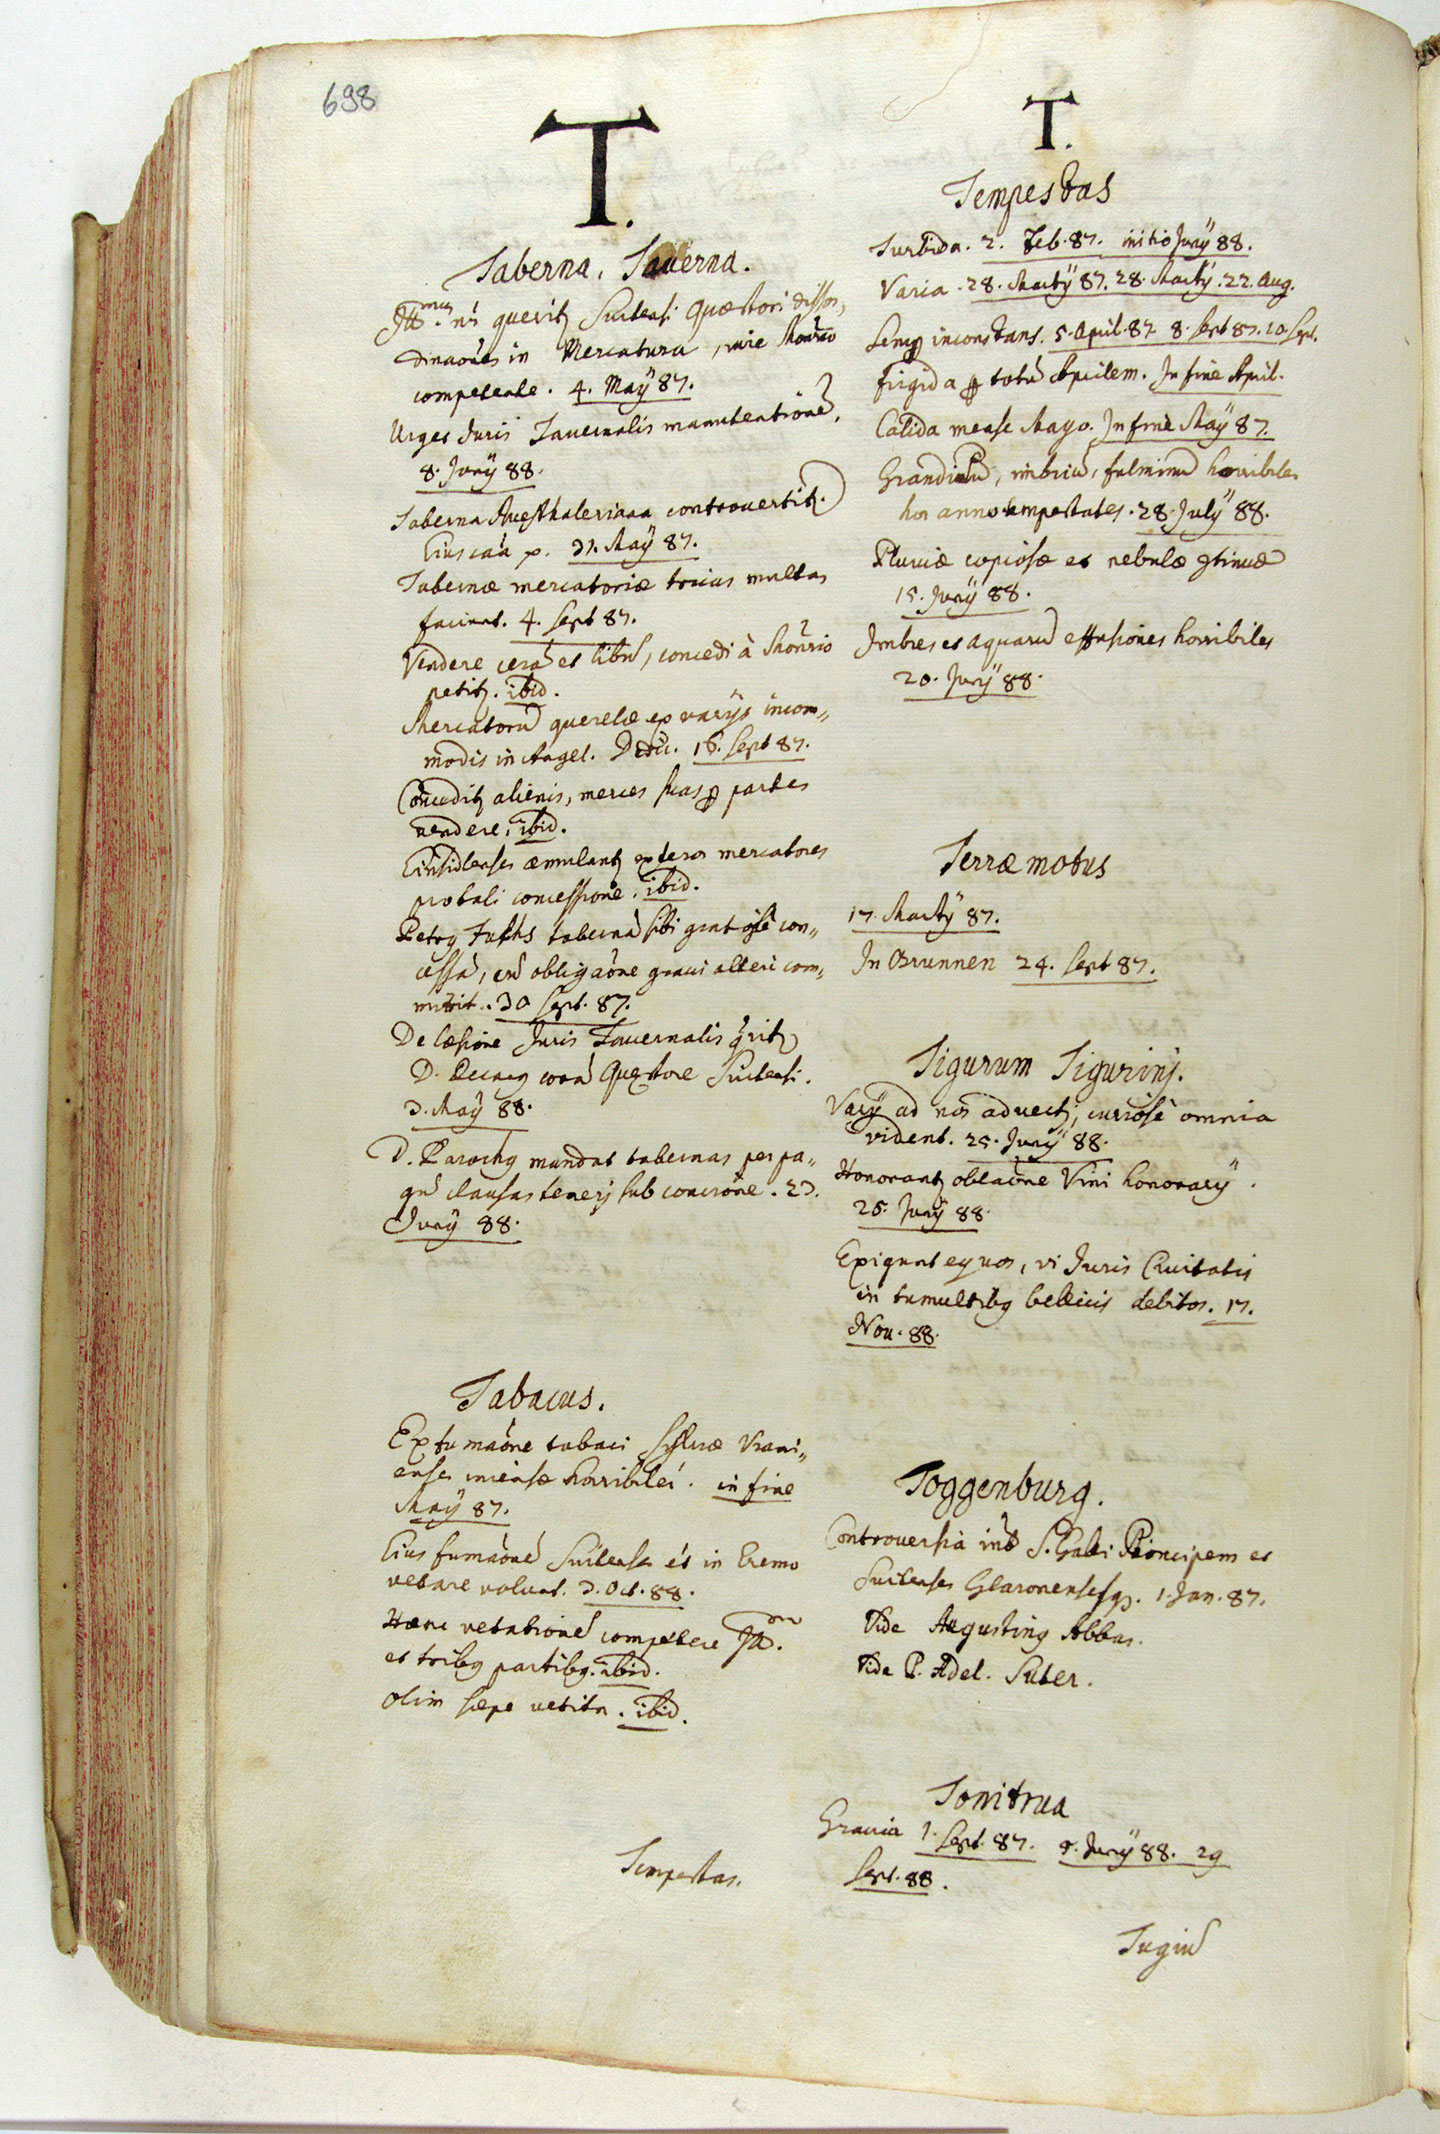 698
T.
Taberna, Tauerna.
Ill.mus nr̃ querit Suitensi Quæstori disor,
dinaões in Mercatura, iure Monrio
competente. 4. Maÿ 87.
Urget Juris Tauernalis manutentionẽ,
8. Junÿ 88.
Taberna controuertit.
Eius cãa p. 31. Maÿ 87.
Tabernæ mercatoriæ tricas multas
faciunt. 4. Sept 87.
Vendere cerã et libros, concedi à Monrio
petit. ibid.
Mercatorũ querelæ ex varÿs incom„
modis in Angel. Dedic. 16. Sept 87.
Concedit alienis, merces suas p partes
uendere, ibid.
Einsidlenses æmulant exteros mercatores
probali concessione. ibid.
Petrg Fuchs tabernã sibi con„
cessã, obligaõne graui alteri com„
mittit. 30 Sept. 87.
De læsione Juris Tauernalis qrit
D. Decang corã Quæstore Suitensi.
3. Maÿ 88.
D. Parochg mandat tabernas per pa„
gũ clausas tenerj sub concione. 23.
Junÿ 88.
Tabacus.
Ex fumaõne tabaci Syluæ Vrani„
enses incensæ horribiler. in fine
Maÿ 87.
Eius fumaõnẽ Suitenses et in Eremo
vetare volunt. 3. Oct. 88.
Hanc vetationẽ competere Ill.mo
et tribg partibg. ibid.
Olim sæpe vetita. ibid.
Tempestas.
T.
Tempestas
Turbida. 2. Feb. 87. initio Junÿ 88.
Varia. 28. Martÿ 87. 28. Martÿ. 22. Aug.
Semp inconstans. 5. April. 87. 8. Sept 87. 20. Sept.
frigida p totũ Aprilem. In fine April.
Calida mense Mayo. In fine Maÿ 87.
Grandinũ, imbriũ, fulminũ horribiles
hoc anno tempestates. 28. Julÿ 88.
Pluuiæ copiosæ et nebulæ 9tinuæ
15. Junÿ 88.
Imbres et aquarũ effusiones horribiles
20. Junÿ 88.
Terræ motus
17. Martÿ 87.
In Brunnen 24. Sept 87.
Tigurum Tigurinj.
Varÿ ad nos aduectj, curiosè omnia
vident. 25. Junÿ 88.
Honorant oblaõne Vini honorarÿ.
26. Junÿ 88.
Exigunt equos, vi Juris Ciuitatis
in tumultibg bellicis debitos. 17.
Nou. 88.
Toggenburg.
Controuersia intr S. Galli Principem et
Suitenses Glaronensesq. 1. Jan. 87.
Vide Augusting Abbas.
Vide P. Adel. Suter.
Tonitrua
Grauia 1. Sept. 87. 9. Junÿ 88. 29
Sept. 88.
Tugiũ